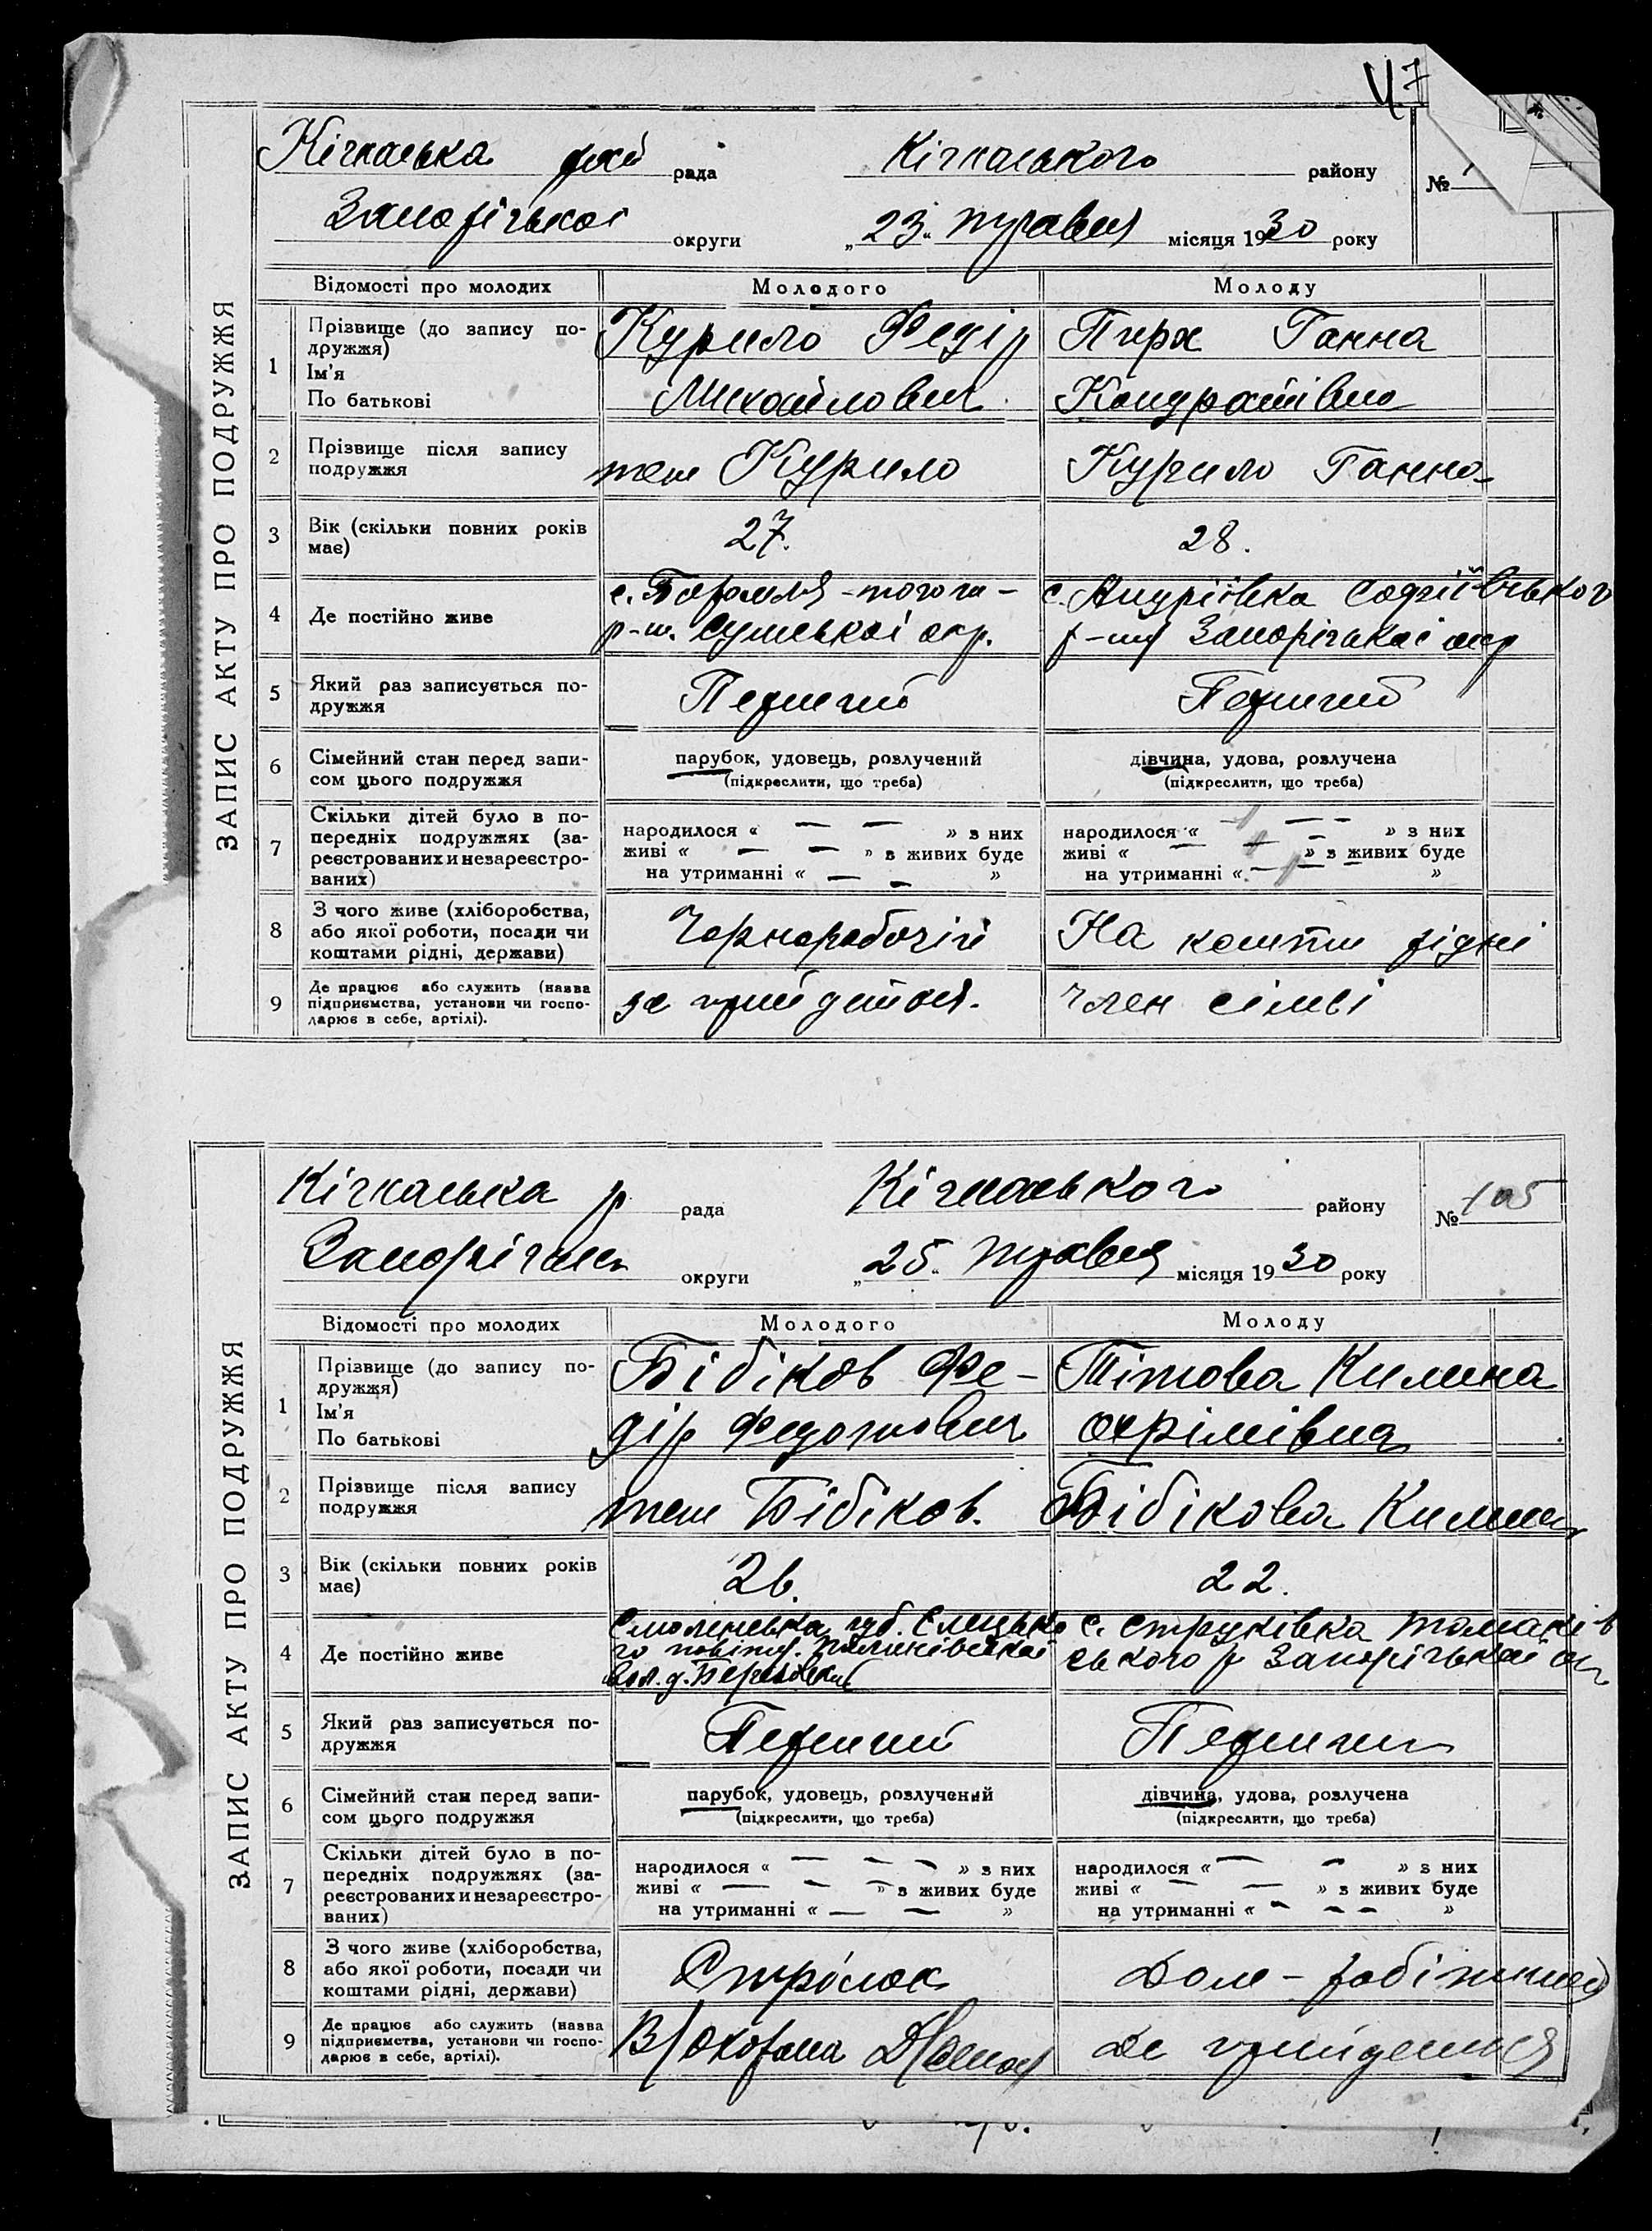 47
ЗАПИС АКТУ ПРО ПОДРУЖЖЯ
Кічкаська рай рада Кічкаського району №
Запорізької округи „23„ травня місяця 1930 року
Відомості про молодих Молодого Молоду
1 Прізвище (до запису по-
дружжя)
Ім'я
По батькові
Курило Федір
Михайлович
Пирх Ганна
Кондратівна
2 Прізвище після запису
подружжя
теж Курило
Курило Ганна
3 Вік (скільки повних років
має)
27.
28.
4 Де постійно живе
с. Боромля - того ж -
р-ш. Сумської окр.
с. Андріївка Софіївського
р-ну Запорізької окр
5 Який раз записується по-
дружжя
Перший
Перший
6 Сімейний стан перед запи-
сом цього подружжя
парубок, удовець, розлучений
(підкреслити, що треба)
дівчина, удова, розлучена
(підкреслити, що треба)
7 Скільки дітей було в по-
передніх подружжях (за-
реєстрованих и незареєстро-
ваних)
народилося « — — » з них
живі « — — » з живих буде
на утриманні « — — »
народилося « — — » з них
живі « — — » з живих буде
на утриманні « — — »
8 З чого живе (хліборобства,
або якої роботи, посади чи
коштами рідні, держави)
Чорноробочій
На кошти рідні
9 Де працює або служить (назва
підприємства, установи чи госпо-
дарює в себе, артілі).
де прийдеться.
член сімьї
ЗАПИС АКТУ ПРО ПОДРУЖЖЯ
Кічкаська р рада Кічкаського району № 105
Запорізьк округи „25„ травня місяця 1930 року
Відомості про молодих Молодого Молоду
1 Прізвище (до запису по-
дружжя)
Ім'я
По батькові
Бібіков Фе-
дір Федотович
Тітова Килина
Охрімівна
2 Прізвище після запису
подружжя
теж Бібіков.
Бібікова Килина
3 Вік (скільки повних років
має)
26.
22.
4 Де постійно живе
Смоленська губ. Єлецько
го повіту.
вол. д. Березовка
с. Струківка Томаків
ського р Запорізької ок
5 Який раз записується по-
дружжя
Перший
Перший
6 Сімейний стан перед запи-
сом цього подружжя
парубок, удовець, розлучений
(підкреслити, що треба)
дівчина, удова, розлучена
(підкреслити, що треба)
7 Скільки дітей було в по-
передніх подружжях (за-
реєстрованих и незареєстро-
ваних)
народилося « — — — » з них
живі « — — — » з живих буде
на утриманні « — — »
народилося « — — » з них
живі « — — » з живих буде
на утриманні « — — — »
8 З чого живе (хліборобства,
або якої роботи, посади чи
коштами рідні, держави)
Стрілок
Дом - робітниця
9 Де працює або служить (назва
підприємства, установи чи госпо-
дарює в себе, артілі).
В/Охорона
де прийдеться